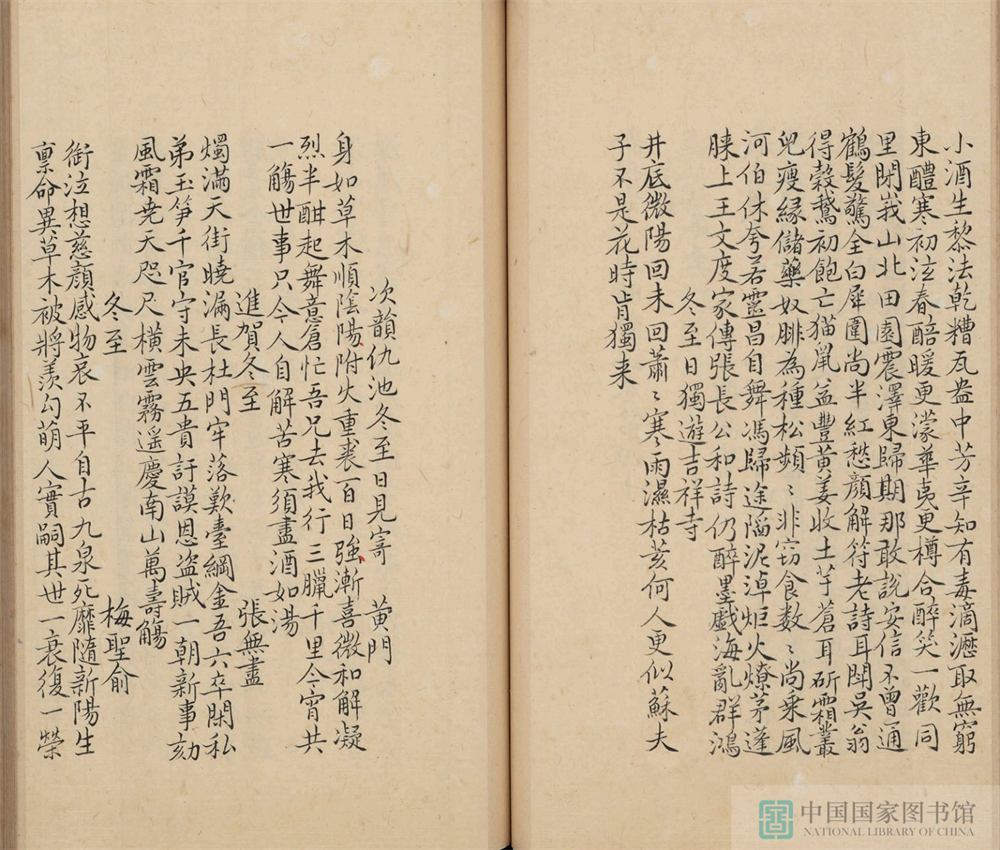 小酒生黎法乾糟瓦盎中芳辛知有毒滴瀝取無窮
東醴寒初泫春醅暖更濛華夷更樽合醉笑一歡同
里閈峩山北田園震澤東歸期那敢說安信不曾通
鶴髮驚全白犀圍尚半紅愁顏解符老詩耳鬬吳翁
得穀鵞初飽亡猫鼠益豐黃姜收土芋蒼耳斫霜叢
兒瘦緣儲藥奴腓為種松頻〻非竊食數〻尚乘風
河伯休夸若靈昌自舞馮歸途隘泥淖炬火燎茅蓬
膝上王文度家傳張長公和詩仍醉墨戲海亂群鴻
冬至日獨遊吉祥寺
井底微陽回未回蕭〻寒雨濕枯荄何人更似蘇夫
子不是花時肯獨来
次韻仇池冬至日見寄 黄門
身如草木順陰陽附火重裘百日強漸喜微和解凝
烈半酣起舞意倉忙吾兄去我行三臘千里今宵共
一觴世事只今人自解苦寒須盡酒如湯
進賀冬至 張無盡
燭滿天街曉漏長杜門牢落歎臺綱金吾六卒閑私
弟玉笋千官守未央五貴訏謨恩盗賊一朝新事劾
風霜尭天咫尺橫雲霧遥慶南山萬壽觴
冬至 梅聖俞
銜泣想慈顔感物哀不平自古九泉死靡隨新陽生
禀命異草木被將羨勾萌人實嗣其世一衰復一榮
中国国家图书馆
NATIONAL LIBRARY OF CHINA